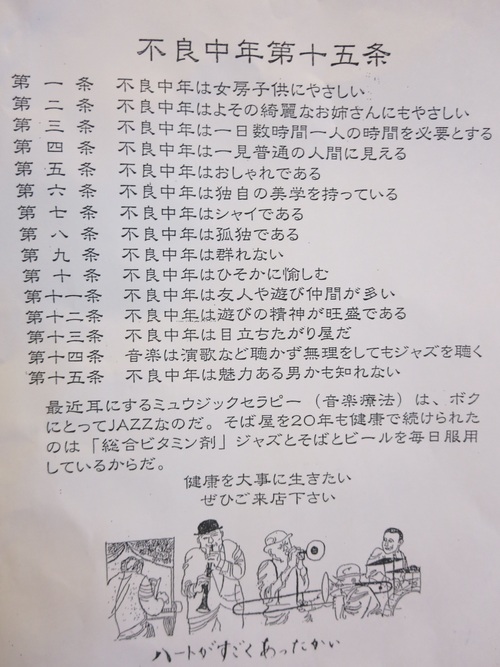 不良中年第十五条
第一条 不良中年は女房子供にやさしい
第二条 不良中年はよその綺麗なお姉さんにもやさしい
第三条 不良中年は一日数時間一人の時間を必要とする
第四条 不良中年は一見普通の人間に見える
第五条 不良中年はおしゃれである
第六条 不良中年は独自の美学を持っている
第七条 不良中年はシャイである
第八条 不良中年は孤独である
第九条 不良中年は群れない
第十条 不良中年はひそかに愉しむ
第十一条 不良中年は友人や遊び仲間が多い
第十二条 不良中年は遊びの精神が旺盛である
第十三条 不良中年は目立ちたがり屋だ
第十四条 音楽は演歌など聴かず無理をしてもジャズを聴く
第十五条 不良中年は魅力ある男かも知れない
最近耳にするミュウジックセラピー（音楽療法）は、ボク
にとってJAZZなのだ。そば屋を20年も健康で続けられた
のは「総合ビタミン剤」ジャズとそばとビールを毎日服用
しているからだ。
健康を大事に生きたい
ぜひご来店下さい
ハートがすごくあったかい